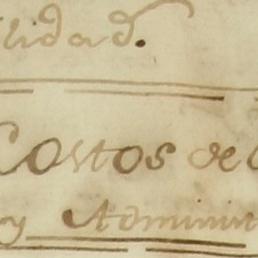 lidad.
Costos de
y Adminis